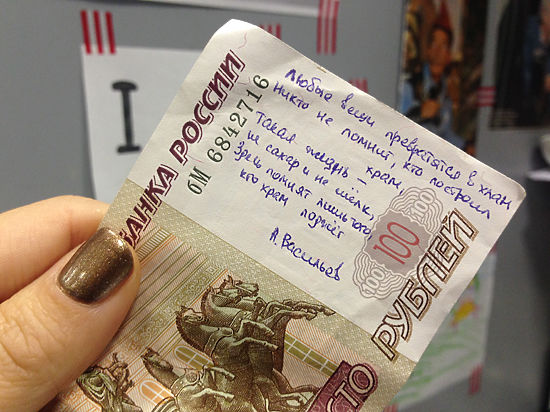 I
БАНКА РОССИИ
бМ 6842716
Любые вещи превратятся в хлам
никто не помнит, кто построил
храм,
Такая жизнь –
не сахар и не шёлк,
Здесь помнят лишь того
кто храм поджёг
А. Васильев
100
100
100
РУБЛЕЙ
СТО